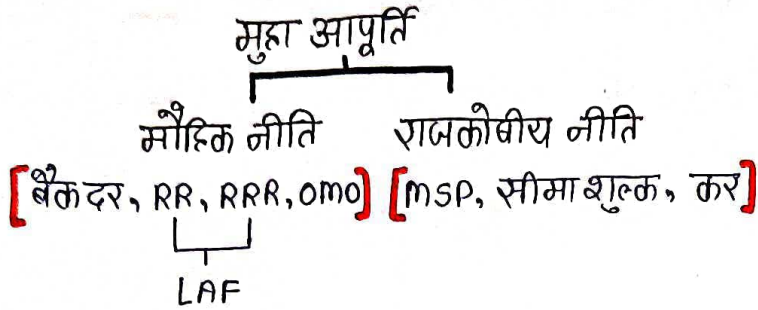 मुद्रा आपूर्ति
मौद्रिक नीति राजकोषीय नीति
[बैंक दर, RR, RRR, OMO] [MSP, सीमा शुल्क, कर]
LAF